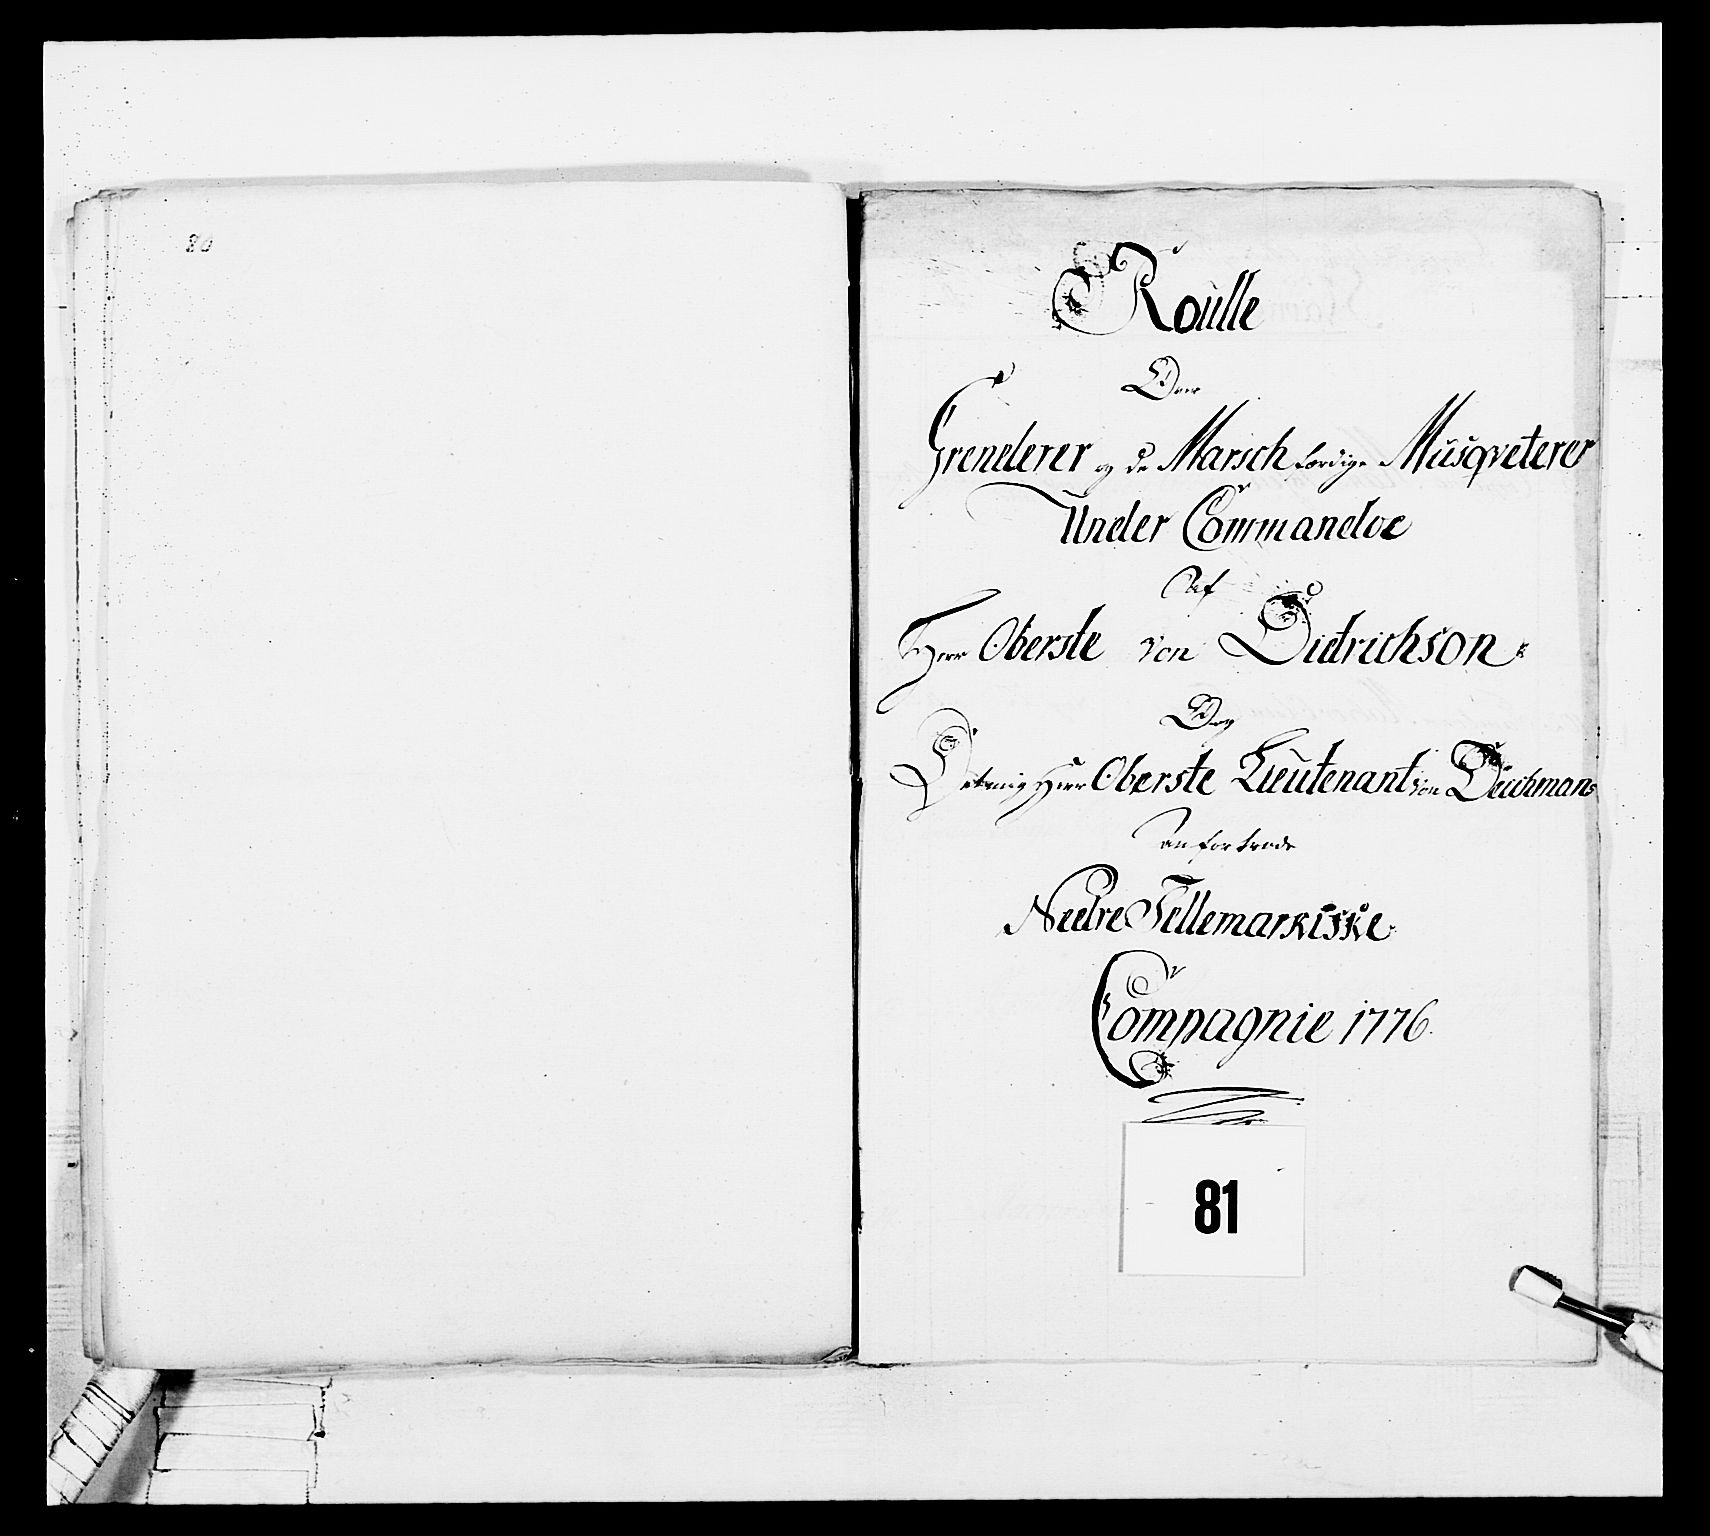 Roulle
Over
Grenderer og de Marsch færdige Musqveterer
Under Commandoe
Af
Herr Oberste von Dietrichson
Og
Herr Oberste Lieutenant von Deichmans
anfortrode
Nedre Tellemarkiske
Compagnie 1776.
81